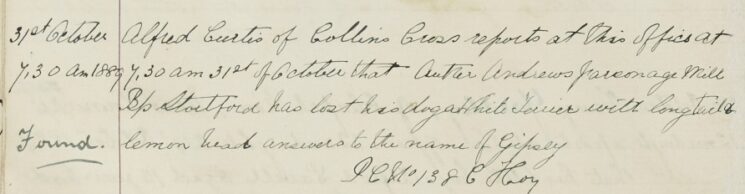 31st October Alfred Curtis of Collins Cross reports at this office at
7,30 am 1889 7,30 am 31st of October that Andrews Parsonage Mill
Bp Stortford has lost his dog a White Terrier with long tail &
Found. lemon head answers to the name of Gipsey
PC No 138 C Hoy